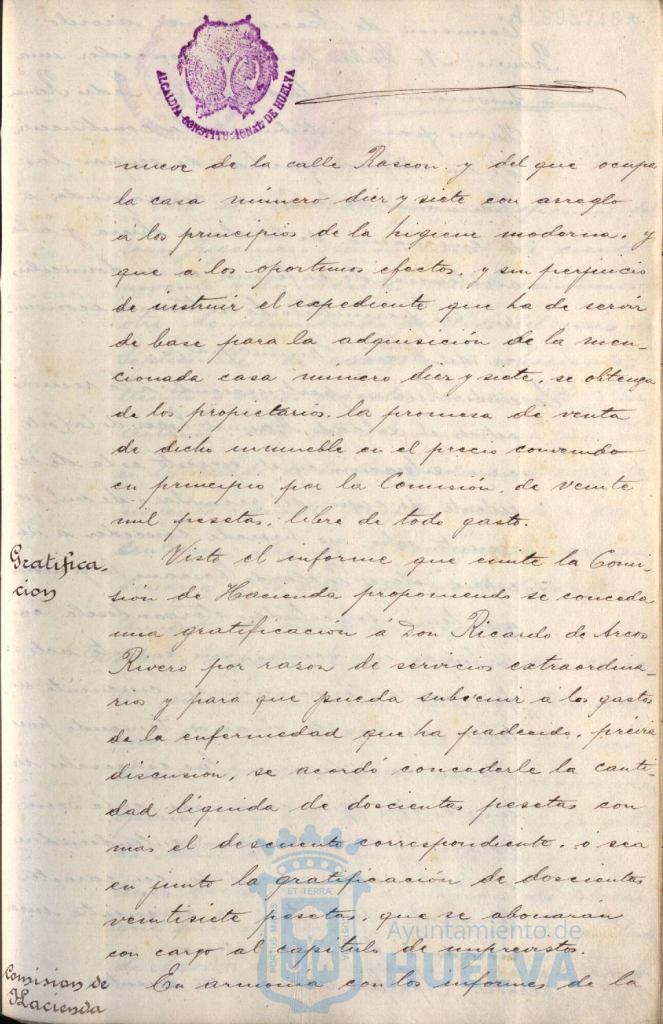 ALCALDIA CONSTITUCIONAL DE HUELVA
nueve de la calle Rascon y del que ocupa
la casa número diez y siete con arreglo
á los principios de la higiene moderna, y
que á los oportunos efectos, y sin perjuicio
de instruir el expediente que ha de servir
de base para la adquisición de la men-
cionada casa número diez y siete, se obtenga
de los propietarios, la promesa de venta
de dicho inmueble en el precio convenido
en principio por la Comisión, de veinte
mil pesetas, libre de todo gasto.
Gratifica-
cion
Visto el informe que emite la Comi-
sión de Hacienda proponiendo se conceda
una gratificación á Don Ricardo de Arcos
Rivero por razon de servicios extraordina-
rios y para que pueda subvenir á los gastos
de la enfermedad que ha padecido, prévia
discusión, se acordó concederle la canti-
dad líquida de doscientas pesetas con
más el descuento correspondiente, ó sea
en junto la gratificación de doscientas
veintisiete pesetas, que se abonarán
con cargo al capítulo de imprevistos.
Comision de
Hacienda
En armonia con los informes de la
PORTUS MARIS ET TERRÆ CUSTODIA
Ayuntamiento de
HUELVA